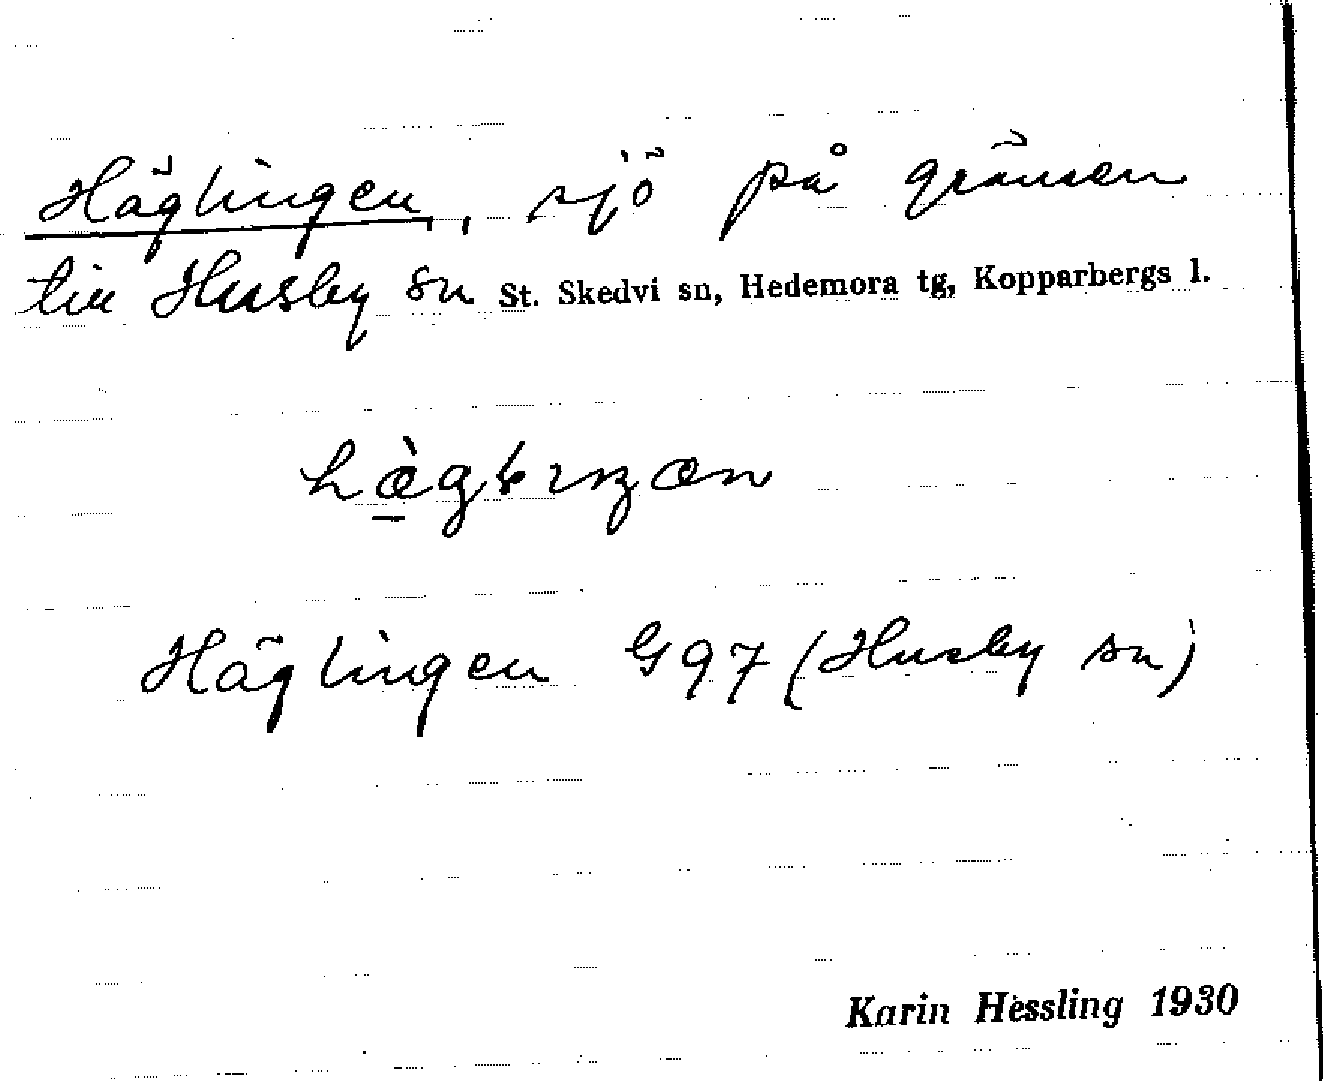 Häglingen, sjö på gränsen
till Husby sn St. Skedvi sn, Hedemora tg, Kopparbergs l.
Häglingen G97 (Husby sn)
Karin Hessling 1930